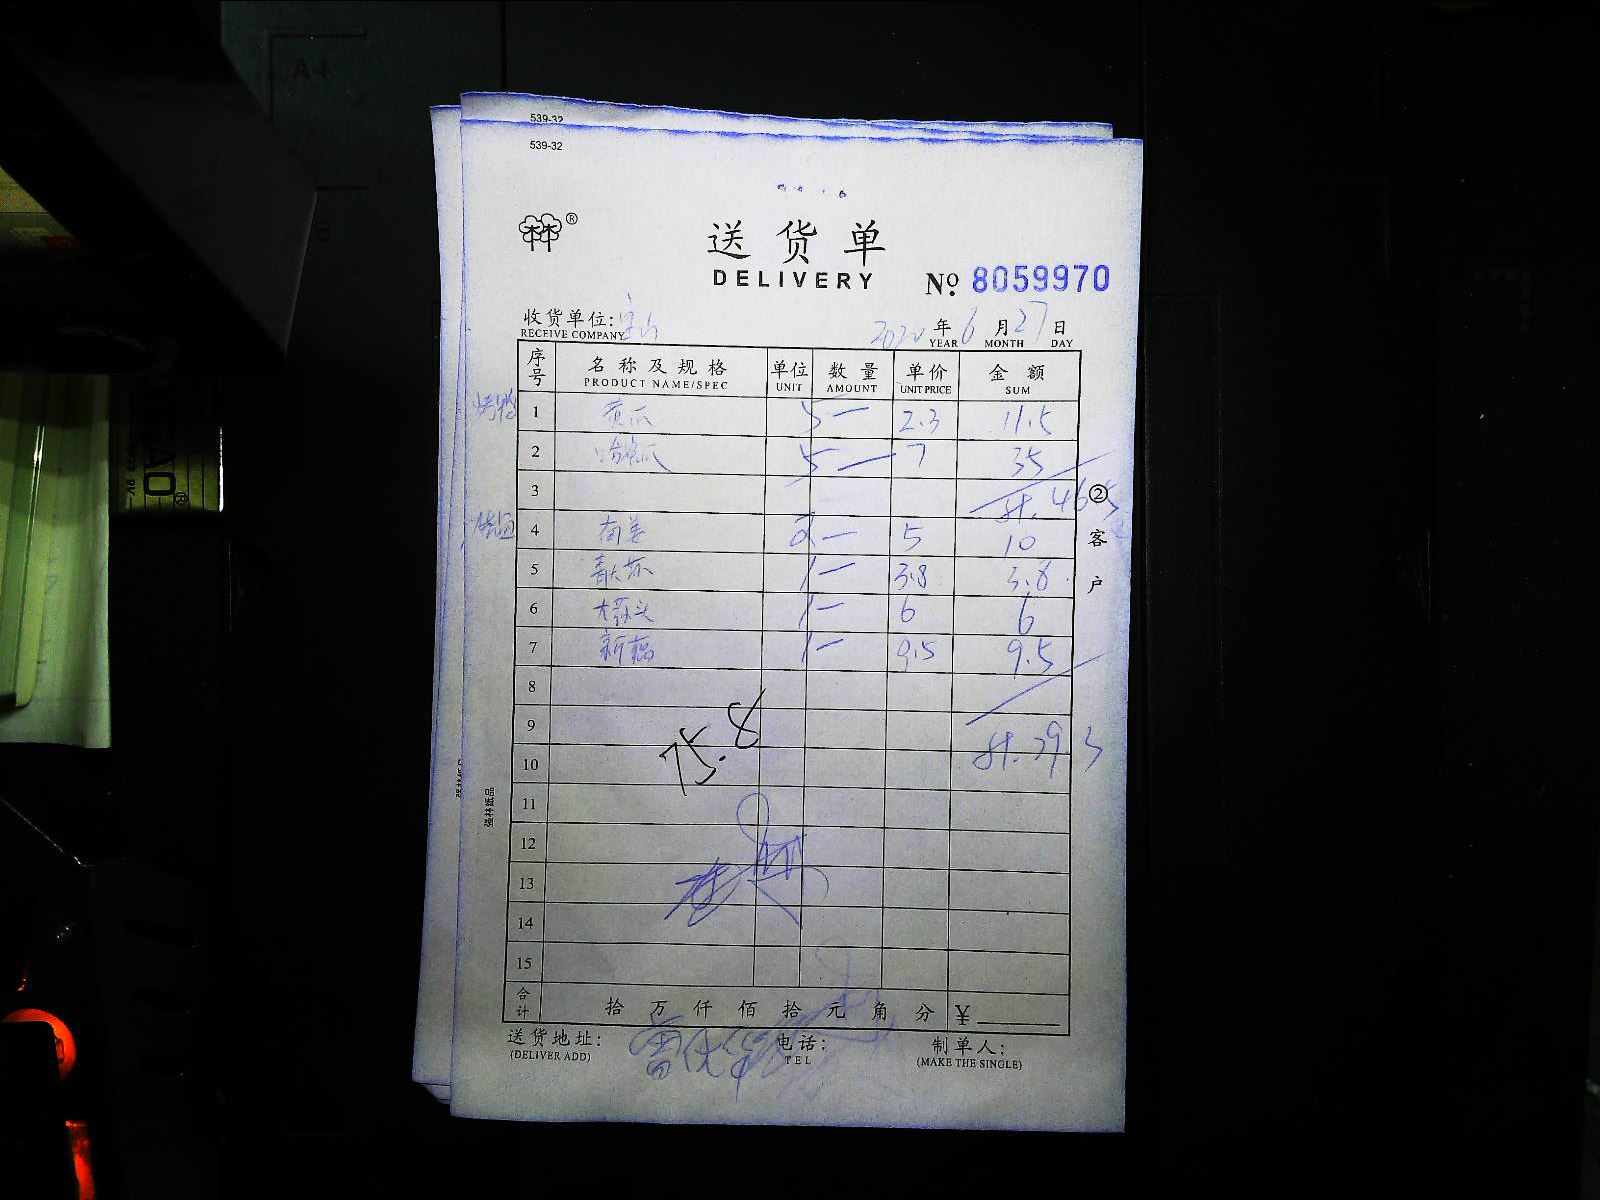 539-32
539-32
林®
送货单
DELIVERY
№ 8059970
收货单位:
RECEIVE COMPANY
2020年6月27日
YEAR MONTH DAY
序号 名称及规格 单位 数量 单价 金额
PRODUCT NAME/SPEC UNIT AMOUNT UNIT PRICE SUM
烤鸭 1 黄瓜 5 — 2.3 11.5
2 哈密瓜 5 — 7 35
3 计.46.5
4 南姜 2 — 5 10
5 3.8 3.8
6 大蒜头 1 — 6 6
7 1 — 9.5 9.5
8
9
计.29.3
10
75.8
11
12
13
14
15
合计 拾 万 仟 佰 拾 元 角 分 ¥
送货地址: 电话: 制单人:
(DELIVER ADD) TEL (MAKE THE SINGLE)
②客户
强林纸品
A4